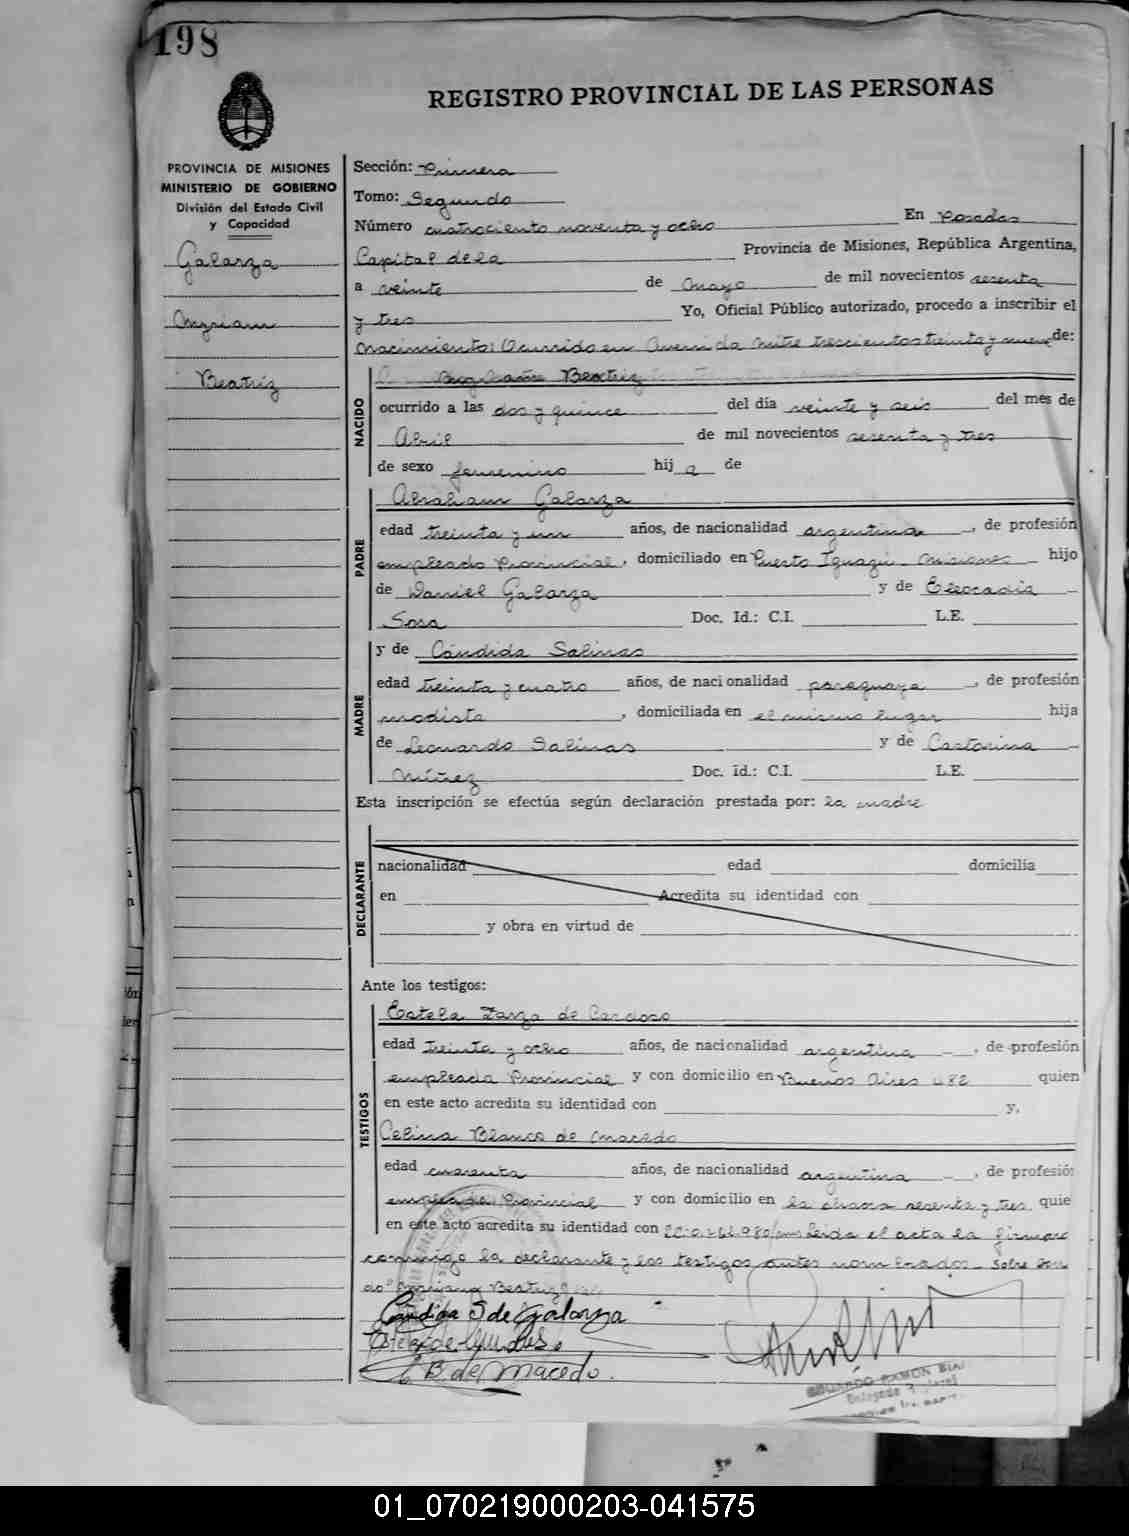 198
REGISTRO PROVINCIAL DE LAS PERSONAS
PROVINCIA DE MISIONES
MINISTERIO DE GOBIERNO
División del Estado Civil
y Capacidad
Galarza
Myriam
Beatriz
Sección: Primera
Tomo: Segundo
Número cuatrociento noventa y ocho En Posadas
Capital de la Provincia de Misiones, República Argentina,
a veinte de Mayo de mil novecientos sesenta
y tres Yo, Oficial Público autorizado, procedo a inscribir el
Nacimiento: Ocurrido en Avenida Mitre trescientos treinta y nueve de:
NACIDO
Beatriz
ocurrido a las dos y quince del día veinte y seis del mes de
Abril de mil novecientos sesenta y tres
de sexo femenino hij a de
PADRE
Abraham Galarza
edad treinta y un años, de nacionalidad argentina, de profesión
empleado Provincial, domiciliado en Puerto Iguazú Misiones hijo
de Daniel Galarza y de Eleocadia
Sosa Doc. Id.: C.I. L.E.
MADRE
y de Cándida Salinas
edad treinta y cuatro años, de nacionalidad paraguaya, de profesión
modista, domiciliada en el mismo lugar hija
de Leonardo Salinas y de Castorina
Núñez Doc. id.: C.I. L.E.
Esta inscripción se efectúa según declaración prestada por: la madre
DECLARANTE
nacionalidad edad domicilia
en Acredita su identidad con
y obra en virtud de
Ante los testigos:
TESTIGOS
Estela Zarza de Cardoso
edad treinta y ocho años, de nacionalidad argentina, de profesión
empleada Provincial y con domicilio en Buenos Aires 482 quien
en este acto acredita su identidad con y,
Celina Blanco de Macedo
edad cuarenta años, de nacionalidad argentina, de profesión
empleada Provincial y con domicilio en la chacra sesenta y tres quie
en este acto acredita su identidad con Leida el acta la firmaron
conmigo la declarante y los testigos antes nombrados. Sobre borra
do "Myriam Beatriz"
Cándida S de Galarza
B. de Macedo.
EDUARDO RAMON
01_070219000203-041575